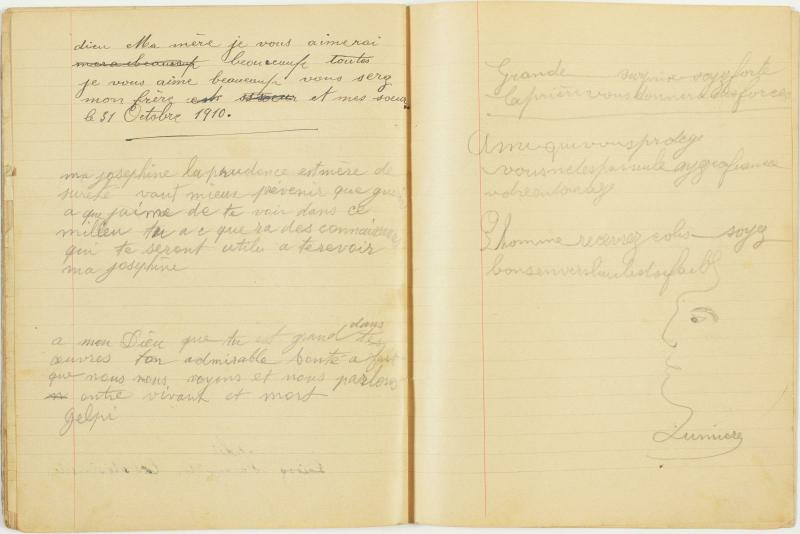 dieu Ma mère je vous aimerai
beaucoucoup toutes
je vous aime beaucoucoup vous serg
mon frère et mes soeur
le 31 Octobre 1910.
ma josephine la prudence est mère de
sureté vaut mieux prevenir que guerir
a que j'aime de te voir dans ce
milieu tu a c que ra des connaissences
qui te seront utile a te revoir
ma josephine
a mon Dieu que tu est grand dans tes
œuvres ton admirable bonté a fait
que nous nous voyons et nous parlons
entre vivant et mort
Gelpi
Grande surprise soyez forte
la prière vous donnera des forces
Ame qui vous protege
vous n'etes pas seule ayez confiance
L'homme recevrez colis soyez
bons envers
Lumiere